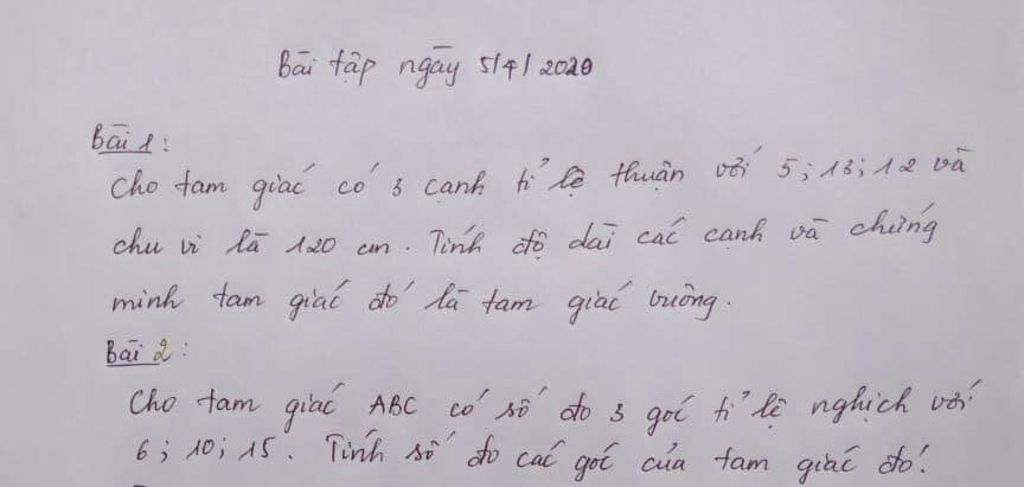 Bài tập ngày 5/4/2020
Bài 1:
Cho tam giác có 3 cạnh tỉ lệ thuận với 5; 13; 12 và
chu vi là 120 cm. Tính độ dài các cạnh và chứng
minh tam giác đó là tam giác vuông.
Bài 2:
Cho tam giác ABC có số đo 3 góc tỉ lệ nghịch với
6; 10; 15. Tính số đo các góc của tam giác đó.